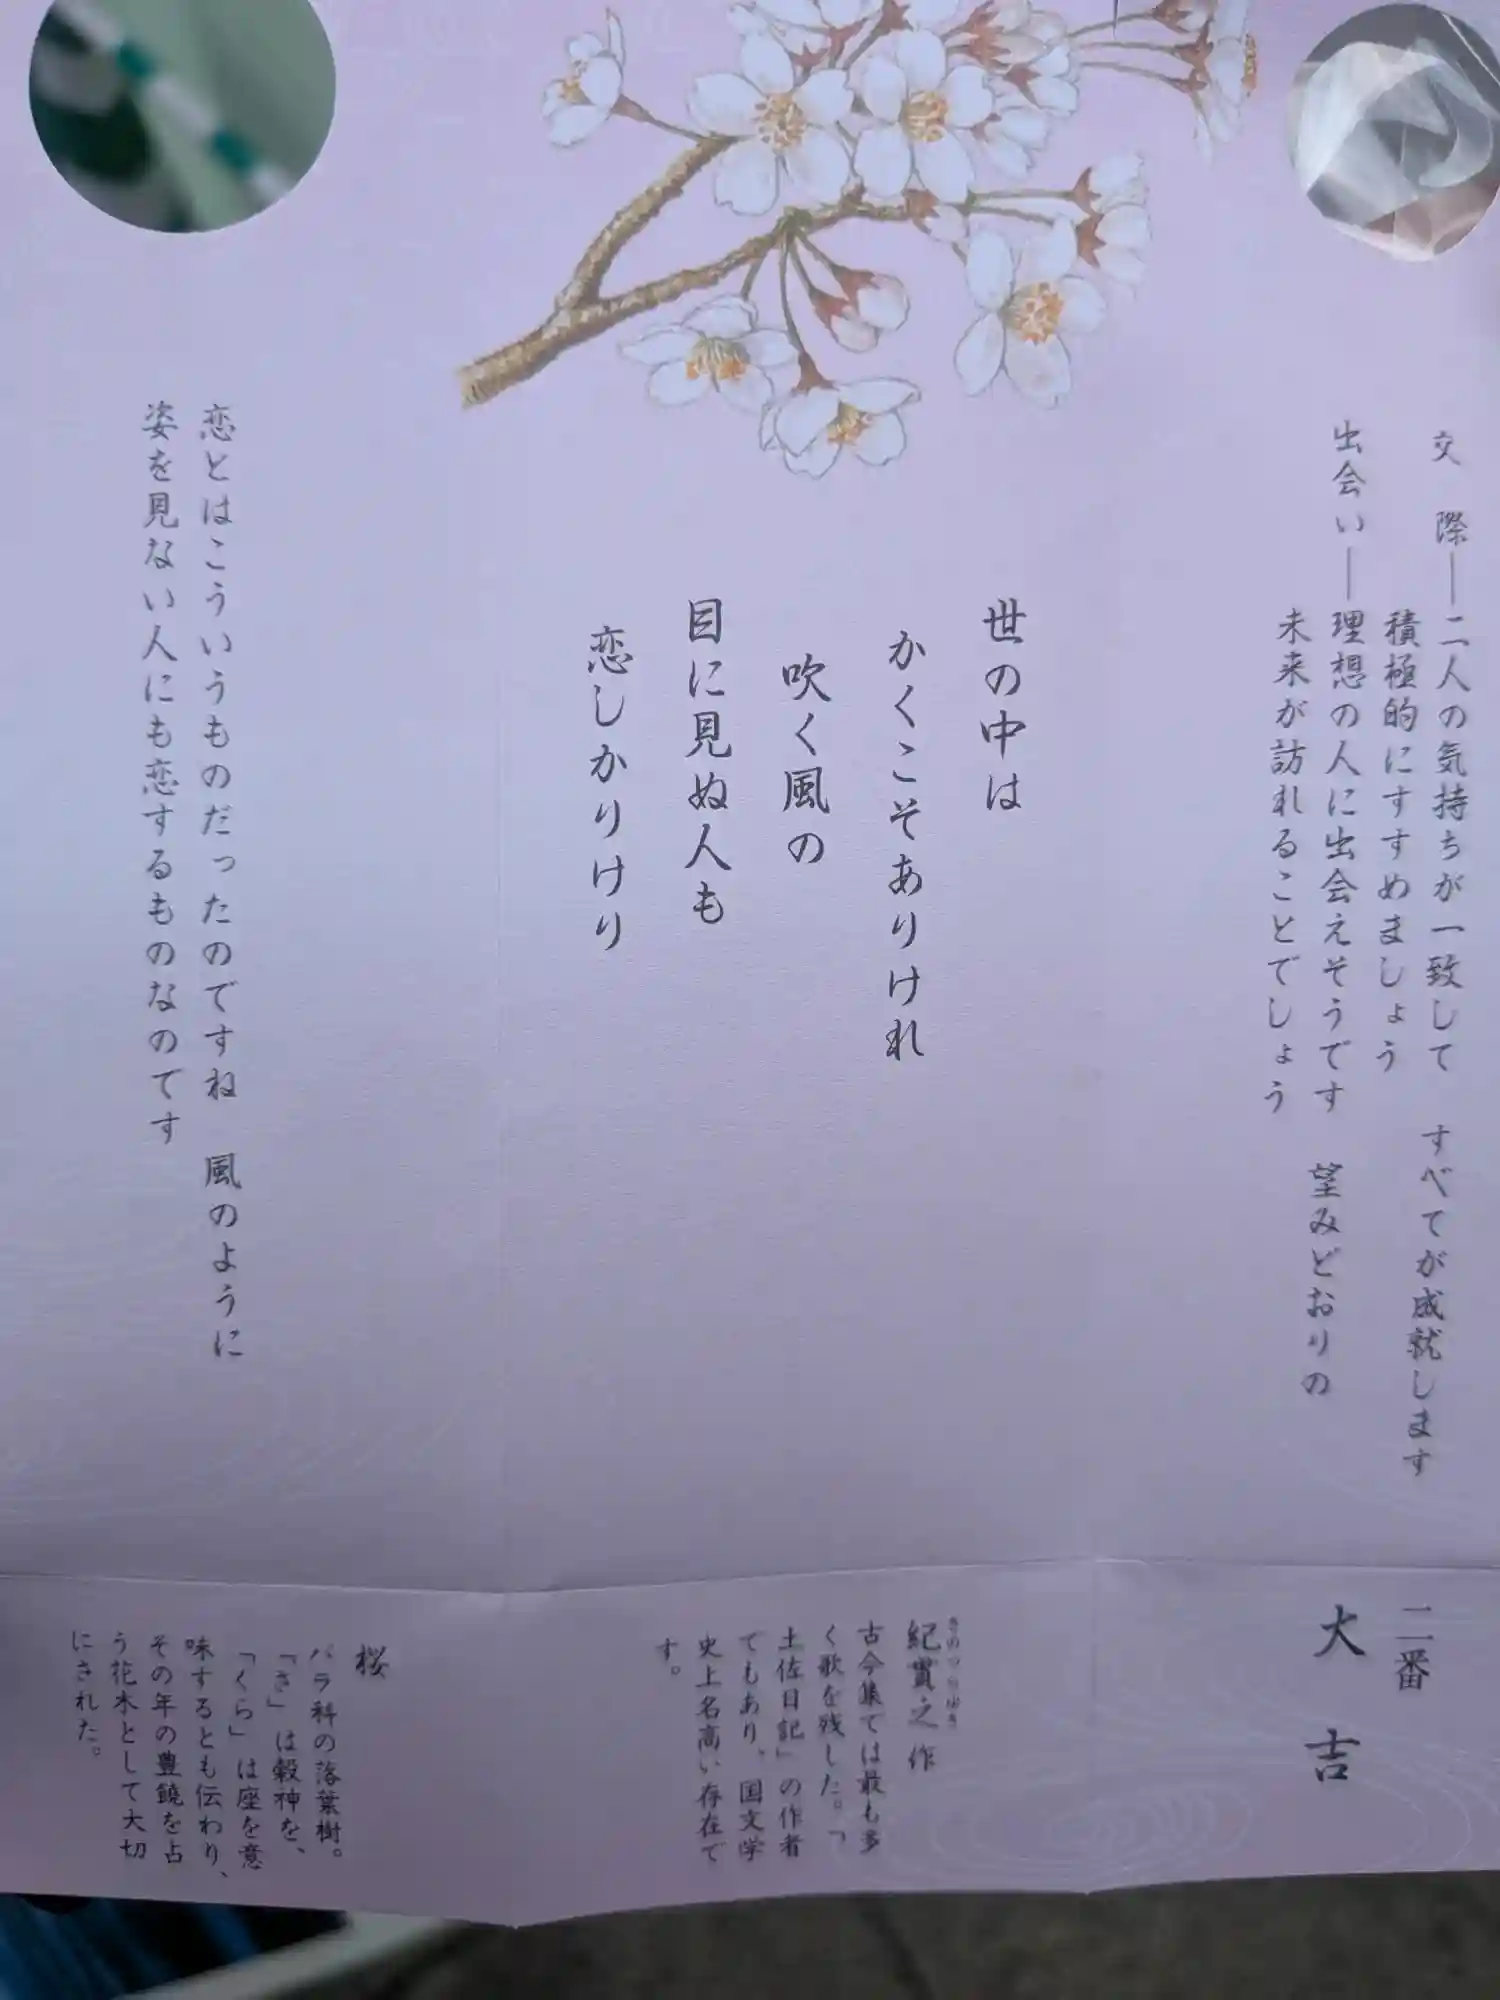 交 際――二人の気持ちが一致して すべてが成就します
積極的にすすめましょう
出会い――理想の人に出会えそうです 望みどおりの
未来が訪れることでしょう
世の中は
かくこそありけれ
吹く風の
目に見ぬ人も
恋しかりけり
恋とはこういうものだったのですね 風のように
姿を見ない人にも恋するものなのです
二番
大 吉
きのつらゆき
紀貫之 作
古今集では最も多
く歌を残した。「
土佐日記」の作者
でもあり、国文学
史上名高い存在で
す。
桜
バラ科の落葉樹。
「さ」は穀神を、
「くら」は座を意
味するとも伝わり、
その年の豊饒を占
う花木として大切
にされた。